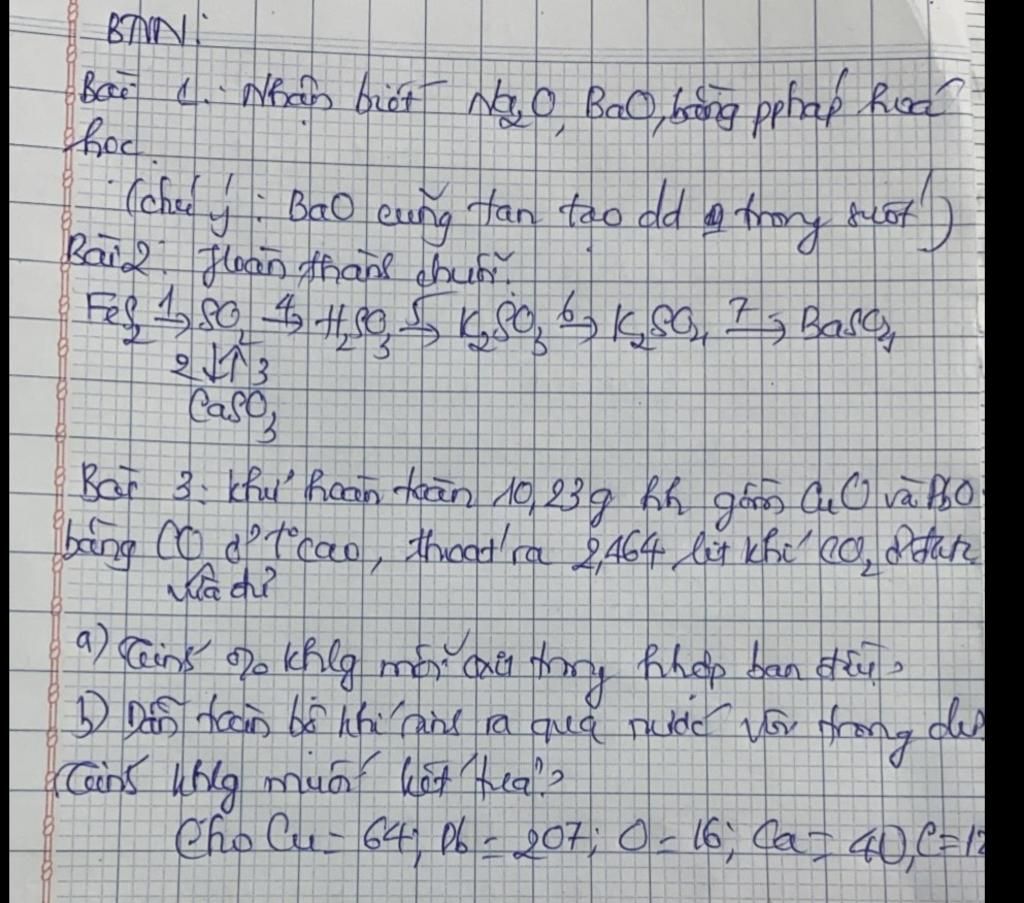 BTVN:
Bài 1: Nhận biết Na₂O, BaO, bằng ppháp hoá
học.
(chú ý: BaO cũng tan tạo dd trong suốt)
Bài 2: Hoàn thành chuỗi.
FeS₂ 1→ SO₂ 4→ H₂SO₃ 5→ K₂SO₃ 6→ K₂SO₄ 7→ BaSO₄
2↓↑3
CaSO₃
Bài 3: Khử hoàn toàn 10,23g hh gồm CuO và PbO
bằng CO ở t° cao, thoát ra 2,464 lít khí CO₂ ở đktc
vừa đủ
a) Tính % khlg mỗi oxit trong hhợp ban đầu?
b) Dẫn toàn bộ khí sinh ra qua nước vôi trong dư
Tính khlg muối kết tủa?
Cho Cu = 64; Pb = 207; O = 16; Ca = 40, C = 12